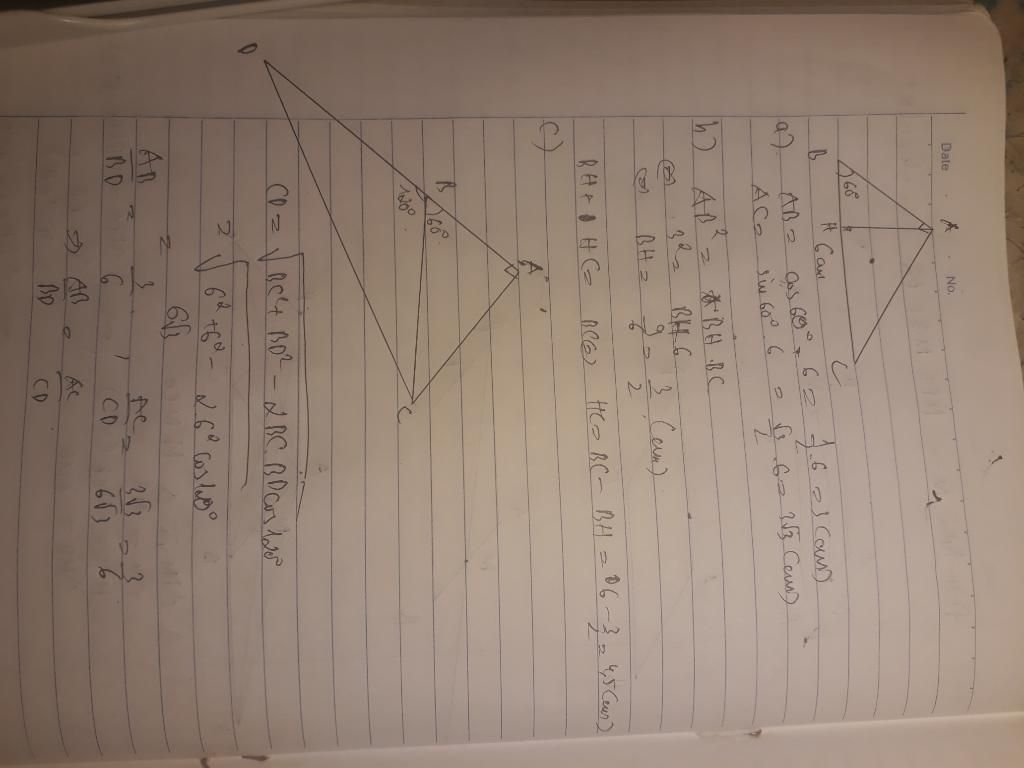 Date No.
A
60°
B H 6cm C
a) AB = cos 60° . 6 = 1/2 . 6 = 3 (cm)
AC = sin 60° . 6 = √3/2 . 6 = 3√3 (cm)
b) AB² = BH . BC
⇔ 3² = BH . 6
⇔ BH = 9/6 = 3/2 (cm)
BH + HC = BC ⇔ HC = BC - BH = 6 - 3/2 = 4,5 (cm)
c)
A
B 60°
120°
C
D
CD = √BC² + BD² - 2BC.BD cos 120°
= √6² + 6² - 2.6² cos 120°
= 6√3
AB/BD = 3/6 , AC/CD = 3√3/6√3 = 3/6
⇒ AB/BD = AC/CD